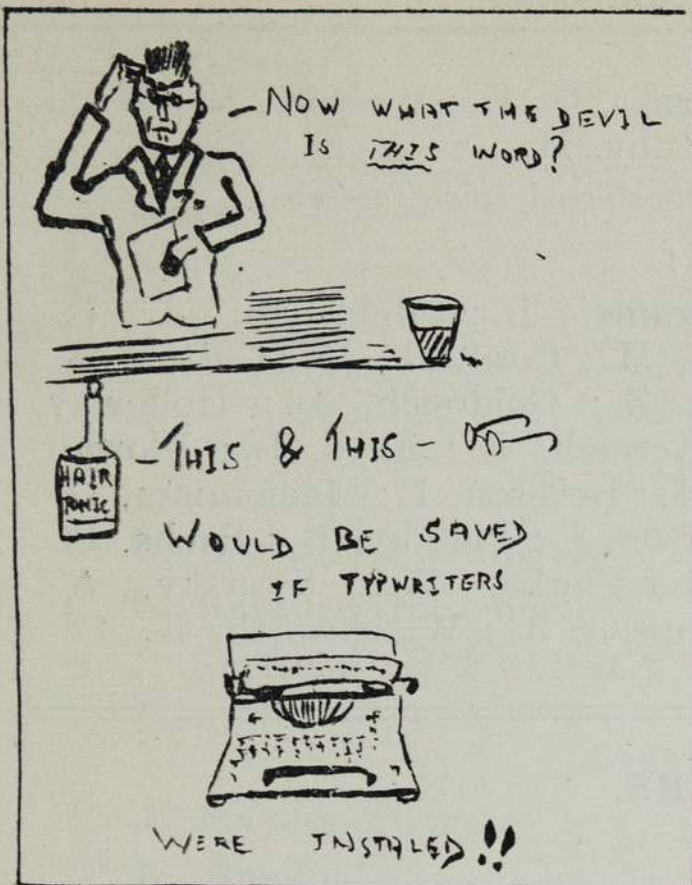 - NOW WHAT THE DEVIL
IS THIS WORD?
HAIR
TONIC
- THIS & THIS -
WOULD BE SAVED
IF TYPWRITERS
WERE INSTALED!!